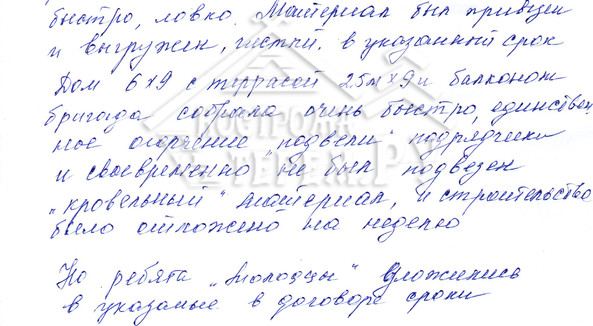 быстро, ловко. Материал был привезен
и выгружен, в указанный срок
Дом 6х9 с террасой 2,5м х 9 и балконом
бригада собрала очень быстро, единствен
ное огорчение "подвели" подрядчики
и своевременно не был подвезен
"кровельный" материал, и строительство
было отложено на неделю
Но ребята "молодцы" уложились
в указаные в договоре сроки
ПОСТРОЙ
ТЕРЕМ.РУ